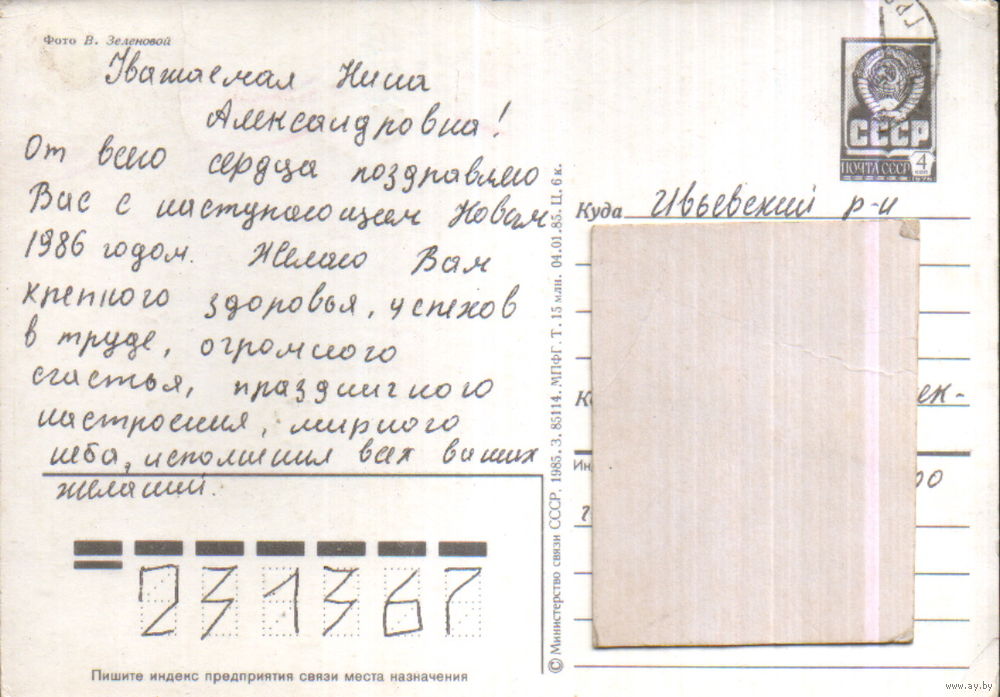 Фото В. Зеленовой
Уважаемая Нина
Александровна!
От всего сердца поздравляю
Вас с наступающим Новым
1986 годом. Желаю Вам
крепкого здоровья, успехов
в труде, огромного
счастья, праздничного
настроения, мирного
неба, исполнения всех ваших
желаний.
231367
Пишите индекс предприятия связи места назначения
© Министерство связи СССР. 1985. З. 85114. МПФГ. Т. 15 млн. 04.01.85. Ц. 6 к.
СССР
ПОЧТА СССР 4 коп
1976
Куда Ивьевский р-н
ек-
Ин
ро
www.ay.by